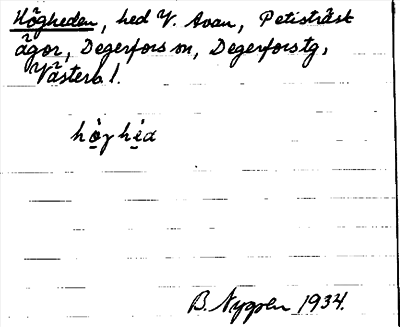 Högheden, hed V. Avan, Petisträsk
ägor, Degerfors sn, Degerforstg,
Västerb l.
B. Nygren 1934.